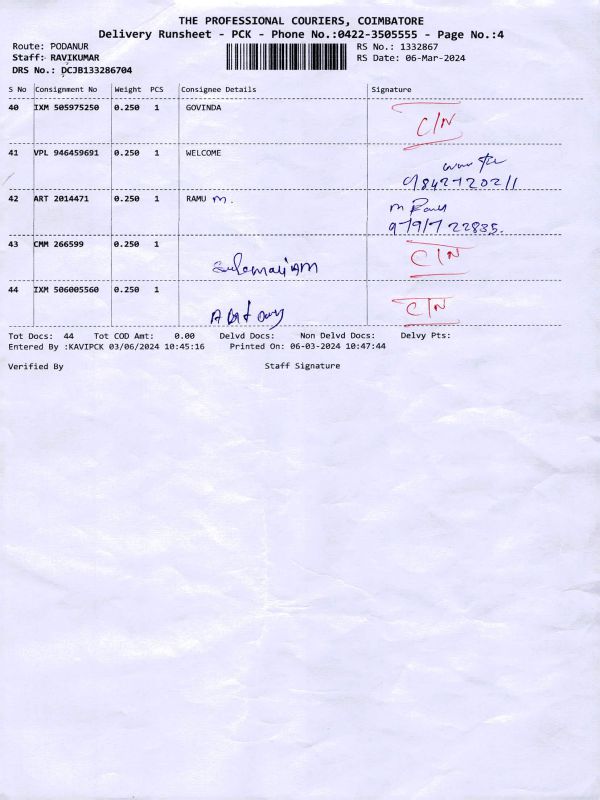 THE PROFESSIONAL COURIERS, COIMBATORE
Delivery Runsheet - PCK - Phone No.:0422-3505555 - Page No.:4
Route: PODANUR RS No.: 1332867
Staff: RAVIKUMAR RS Date: 06-Mar-2024
DRS No.: DCJB133286704
S No Consignment No Weight PCS Consignee Details Signature
40 IXM 505975250 0.250 1 GOVINDA C/N
41 VPL 946459691 0.250 1 WELCOME
9842720211
42 ART 2014471 0.250 1 RAMU M. M Ramu
9791722835.
43 CMM 266599 0.250 1 C/N
44 IXM 506005560 0.250 1 C/N
Tot Docs: 44 Tot COD Amt: 0.00 Delvd Docs: Non Delvd Docs: Delvy Pts:
Entered By :KAVIPCK 03/06/2024 10:45:16 Printed On: 06-03-2024 10:47:44
Verified By Staff Signature